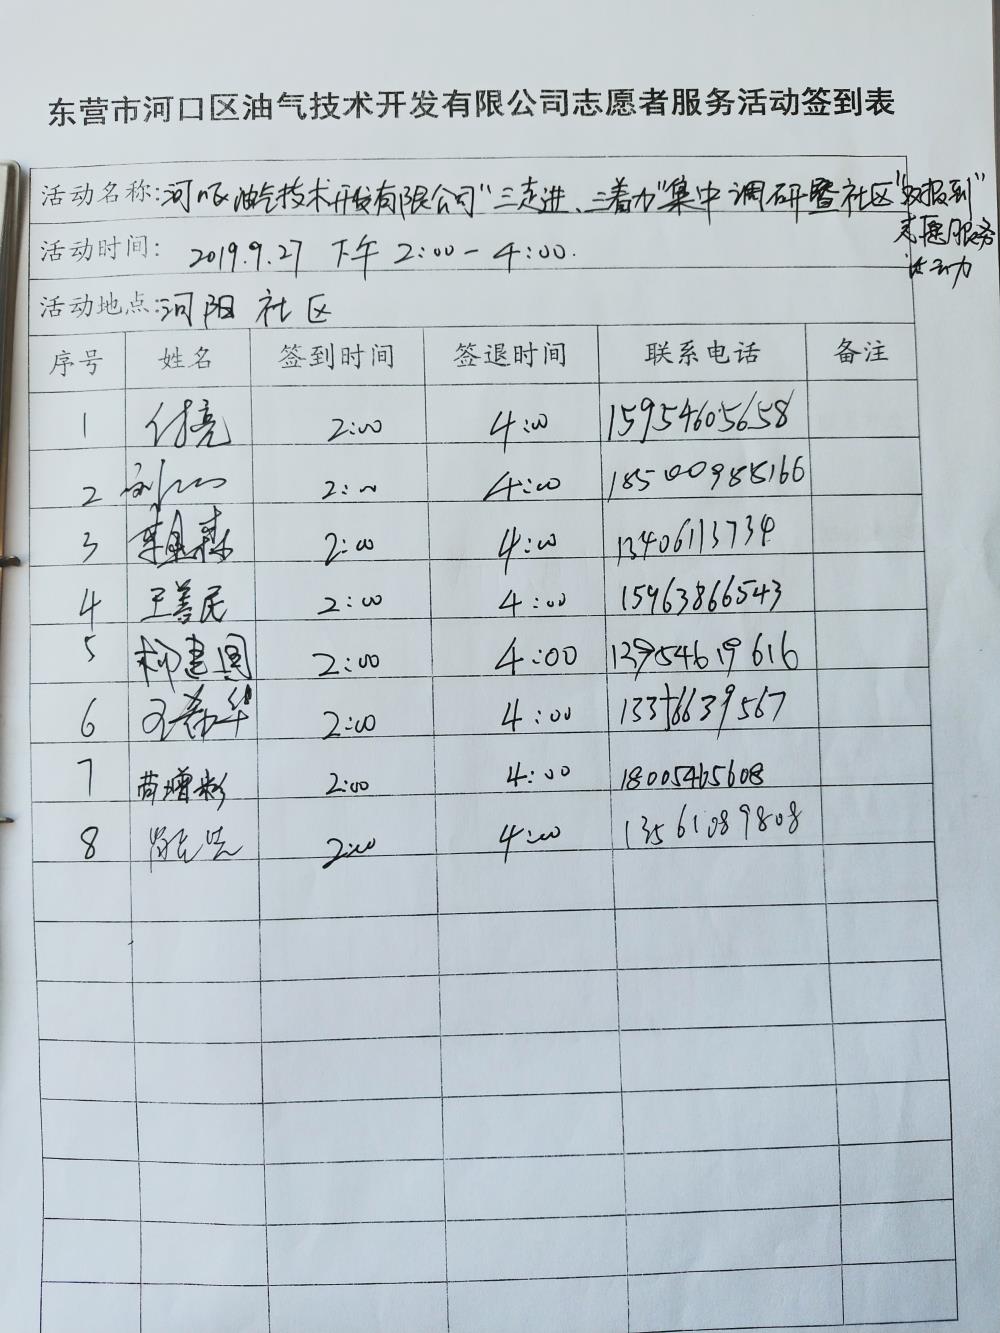 东营市河口区油气技术开发有限公司志愿者服务活动签到表
活动名称:河口区油气技术开发有限公司"三走进、三着力"集中调研暨社区"双报到"
志愿服务
活动
活动时间: 2019.9.27 下午 2:00-4:00.
活动地点:河阳社区
序号 姓名 签到时间 签退时间 联系电话 备注
1 付亮 2:00 4:00 15954605658
2 2:00 4:00
3 2:00 4:00 13406113734
4 王善民 2:00 4:00 15963866543
5 柳建国 2:00 4:00
6 2:00 4:00
7 苗增彬 2:00 4:00 18005465608
8 2:00 4:00 13561089808